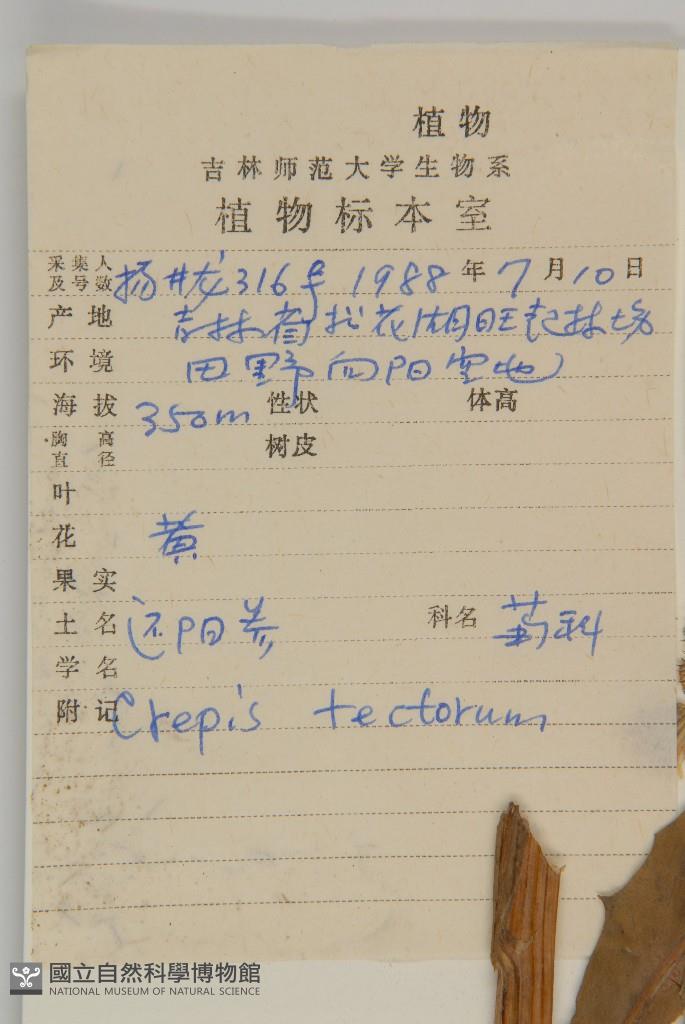 植物
吉林师范大学生物系
植物标本室
采集人及号数 杨井龙316号 1988年7月10日
产地 吉林省松花湖旺起林场
环境 田野向阳空地
海拔 350m 性状 体高
胸高直径 树皮
叶
花 黄
果实
土名 还阳参 科名 菊科
学名
附记 Crepis tectorum
國立自然科學博物館
NATIONAL MUSEUM OF NATURAL SCIENCE